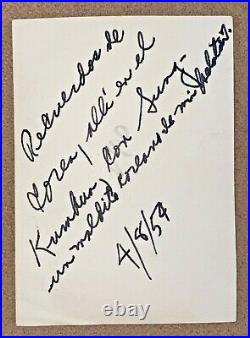 Recuerdos de
Corea, allí en el
Kumhwa, con Sung-
un maldito coreano de mi Pelotón.
4/8/54